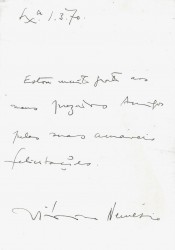 Lxª 1.3.70.
Estou muito grato aos
meus prezados Amigos
pelas suas amáveis
felicitações.
Vitorino Nemésio